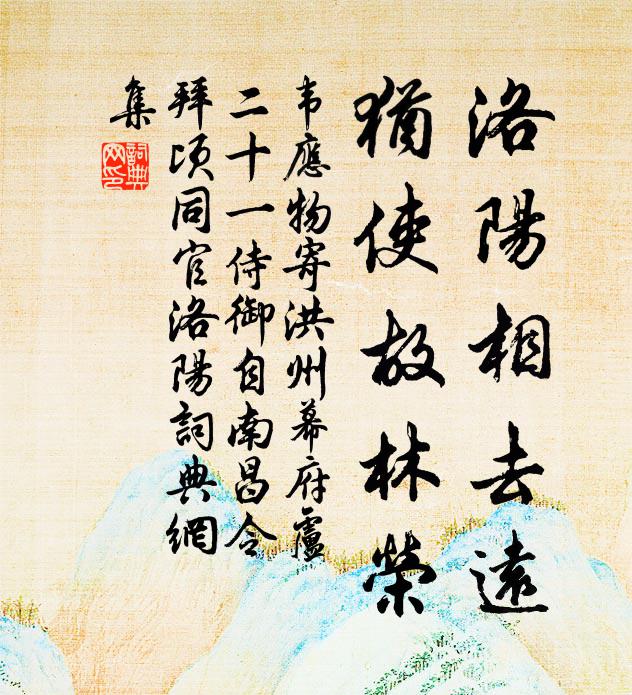 洛陽相去遠
猶使故林榮
韦應物寄洪州幕府盧
二十一侍御自南昌令
拜頃同官洛陽詞典網
集
詞典
网印